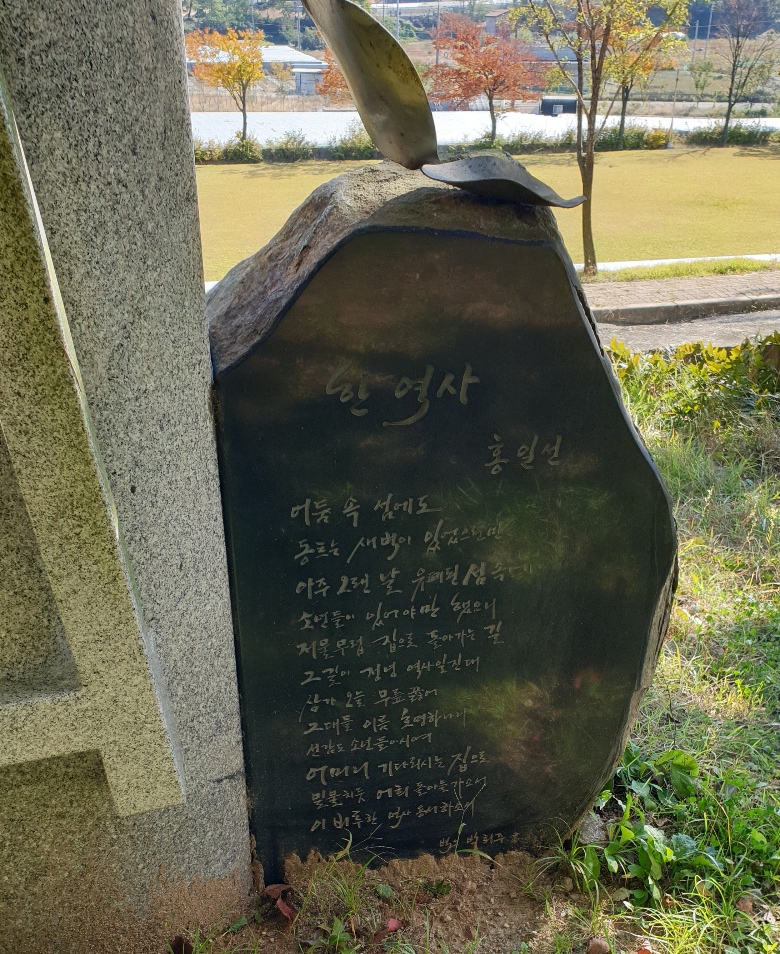 한 역사
홍일선
어둠 속 섬에도
동트는 새벽이 있었으련만
아주 오랜 날 유폐된 섬 속에
소년들이 있어야만 했으니
저물무렵 집으로 돌아가는 길
그곳이 정녕 역사일진대
삼가 오늘 무릎꿇어
그대들 이름 호명하나니
선감도 소년들이시여
어머니 기다리시는 집으로
밀물치듯 어희 돌아들 가소서
이 비루한 역사 용서하소서
박희주